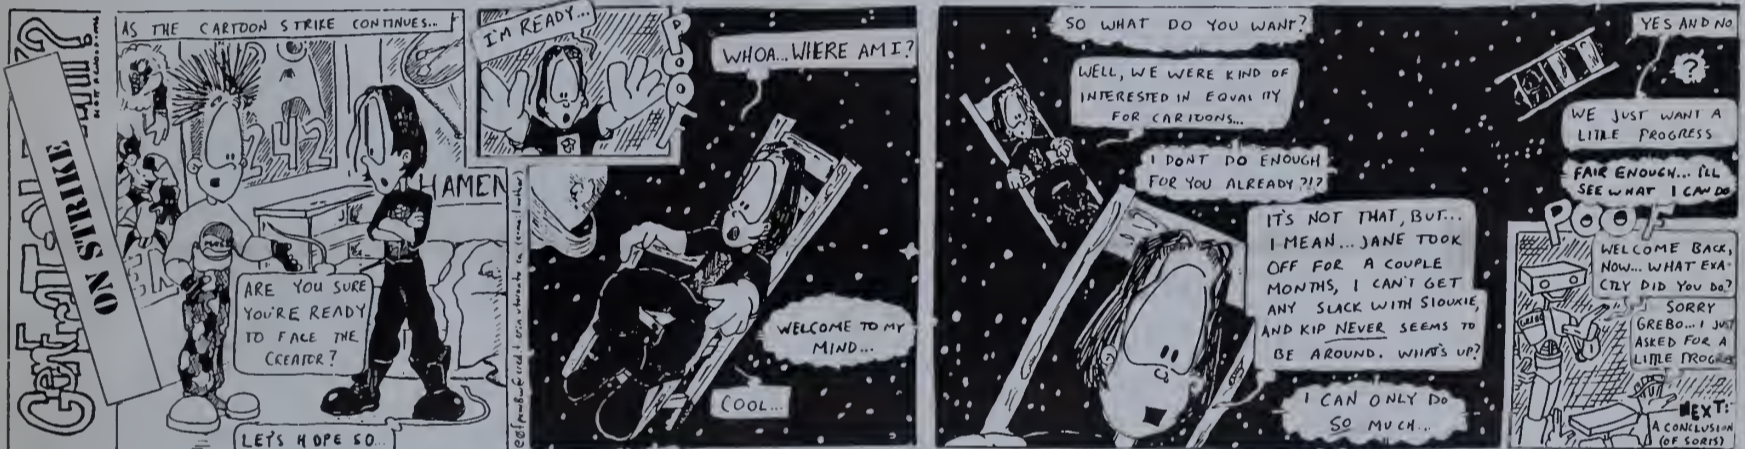 ON STRIKE
AS THE CARTOON STRIKE CONTINUES...
242
HAMEN
ARE YOU SURE
YOU'RE READY
TO FACE THE
CREATOR?
LET'S HOPE SO...
I'M READY...
POOF
WHOA...WHERE AM I?
WELCOME TO MY
MIND...
COOL...
SO WHAT DO YOU WANT?
WELL, WE WERE KIND OF
INTERESTED IN EQUALITY
FOR CARTOONS...
I DONT DO ENOUGH
FOR YOU ALREADY?!?
IT'S NOT THAT, BUT...
I MEAN... JANE TOOK
OFF FOR A COUPLE
MONTHS, I CAN'T GET
ANY SLACK WITH SIOUXIE,
AND KIP NEVER SEEMS TO
BE AROUND. WHAT'S UP?
I CAN ONLY DO
SO MUCH...
YES AND NO
?
WE JUST WANT A
LITTLE PROGRESS
FAIR ENOUGH... I'LL
SEE WHAT I CAN DO
POOF
WELCOME BACK,
NOW... WHAT EXA-
CTLY DID YOU DO?
SORRY
GREBO... I JUST
ASKED FOR A
LITTLE PROGRESS
NEXT:
A CONCLUSION
(OF SORTS)